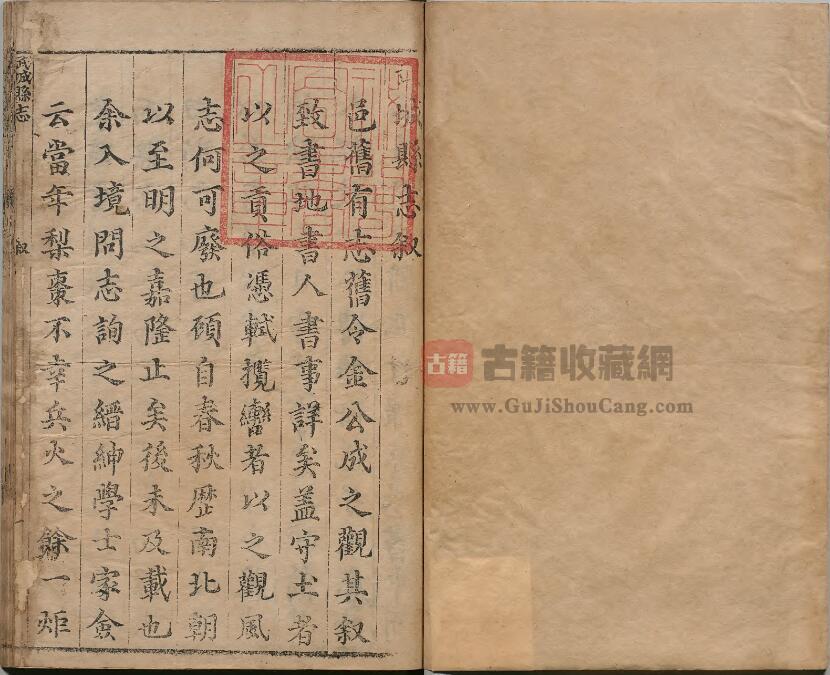 武城縣志叙
邑舊有志舊令金公成之觀其叙
致書地書人書事詳矣盖守土者
以之貢俗憑軾攬轡者以之觀風
志何可廢也頋自春秋歷南北朝
以至明之嘉隆止矣後未及載也
余入境問志詢之縉紳學士家僉
云當年梨棗不幸兵火之餘一炬
武城縣志
叙
古籍
古籍收藏網
www.GuJiShouCang.com